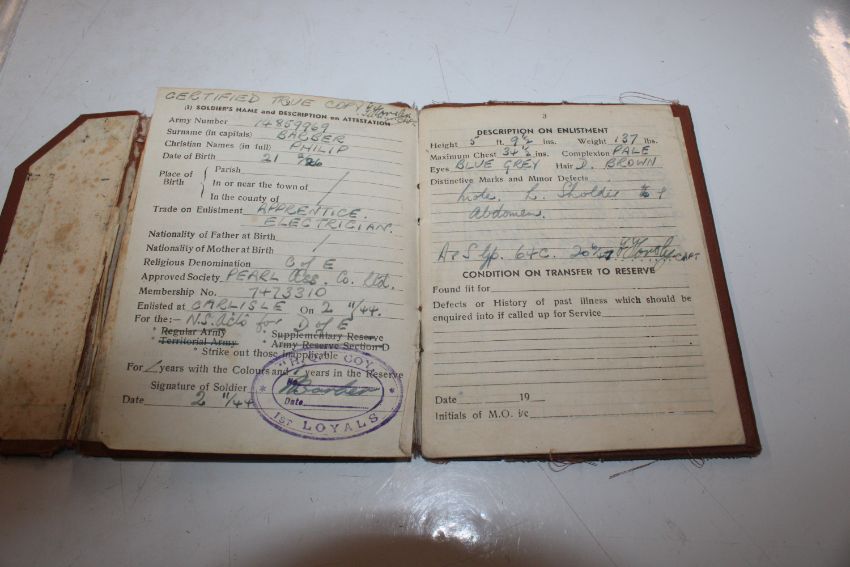 CERTIFIED TRUE COPY
(1) SOLDIER'S NAME and DESCRIPTION on ATTESTATION
Army Number 14859969
Surname (in capitals) BARBER
Christian Names (in full) PHILIP
Date of Birth 21
Place of Birth
Parish
In or near the town of
In the county of
Trade on Enlistment APPRENTICE
ELECTRICIAN.
Nationality of Father at Birth
Nationality of Mother at Birth
Religious Denomination C of E
Approved Society PEARL Ass. Co. Ltd.
Membership No. 7473310
Enlisted at CARLISLE On 2 11/44.
For the:- N.S. Acts for D of E
* Regular Army * Supplementary Reserve
* Territorial Army * Army Reserve Section D
* Strike out those inapplicable
For years with the Colours and years in the Reserve
Signature of Soldier
Date 2 11/44
"HQ" COY.
No
Date
1ST LOYALS
3
DESCRIPTION ON ENLISTMENT
Height 5 ft. 9½ ins. Weight 137 lbs.
Maximum Chest 34½ ins. Complexion PALE
Eyes BLUE GREY Hair D. BROWN
Distinctive Marks and Minor Defects
mole. L. &
Abdomen.
CAPT
CONDITION ON TRANSFER TO RESERVE
Found fit for
Defects or History of past illness which should be
enquired into if called up for Service
Date 19
Initials of M.O. i/c